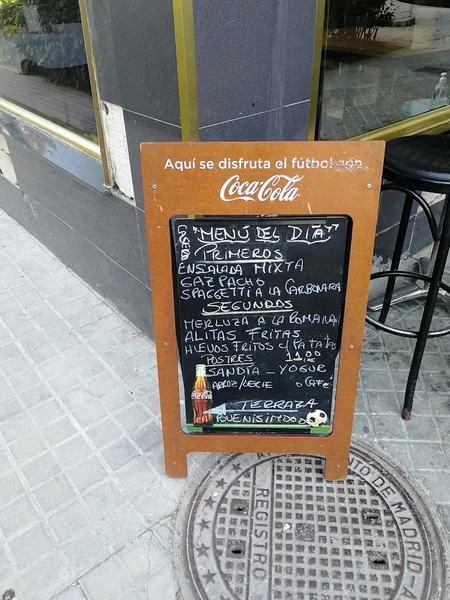 Aquí se disfruta el fútbol con
Coca-Cola
"MENÚ DEL DIA"
PRIMEROS
ENSALADA MIXTA
GAZPACHO
SPAGGETTI A LA CARBONARA
SEGUNDOS
MERLUZA A LA ROMANA
ALITAS FRITAS
HUEVOS FRITOS C/PATATAS
POSTRES 11,00
SANDÍA - YOGUR
ARROZ/LECHE O CAFÉ
Coca-Cola
TERRAZA
REGISTRO
AYUNTAMIENTO DE MADRID